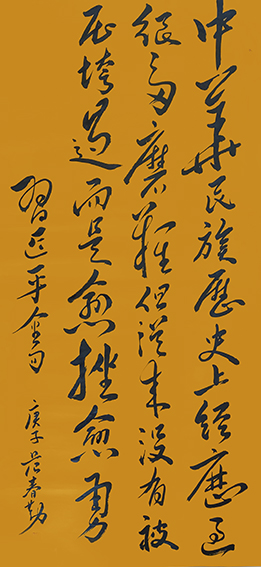 中华民族历史上经历过
很多磨难但从来没有被
压垮过而是愈挫愈勇
习近平金句
庚子 春勤